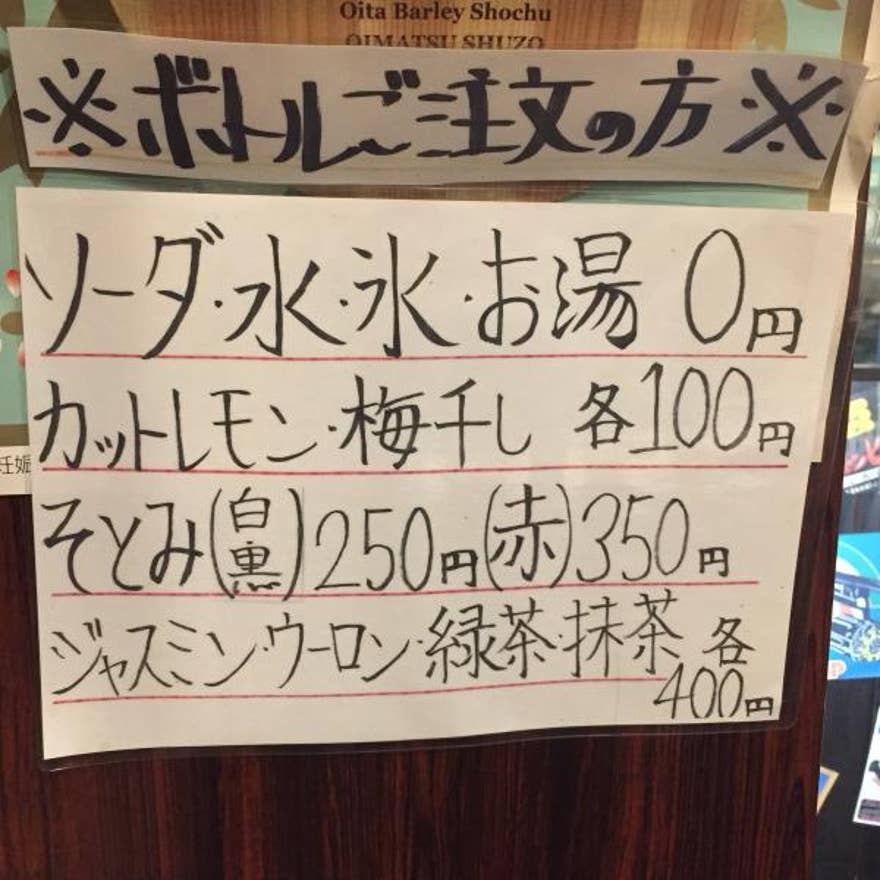 Oita Barley Shochu
OIMATSU SHUZO
※ボトルご注文の方※
ソーダ・水・氷・お湯 0円
カットレモン・梅干し 各100円
そとみ(白黒)250円(赤)350円
ジャスミン・ウーロン・緑茶・抹茶 各
400円
妊娠